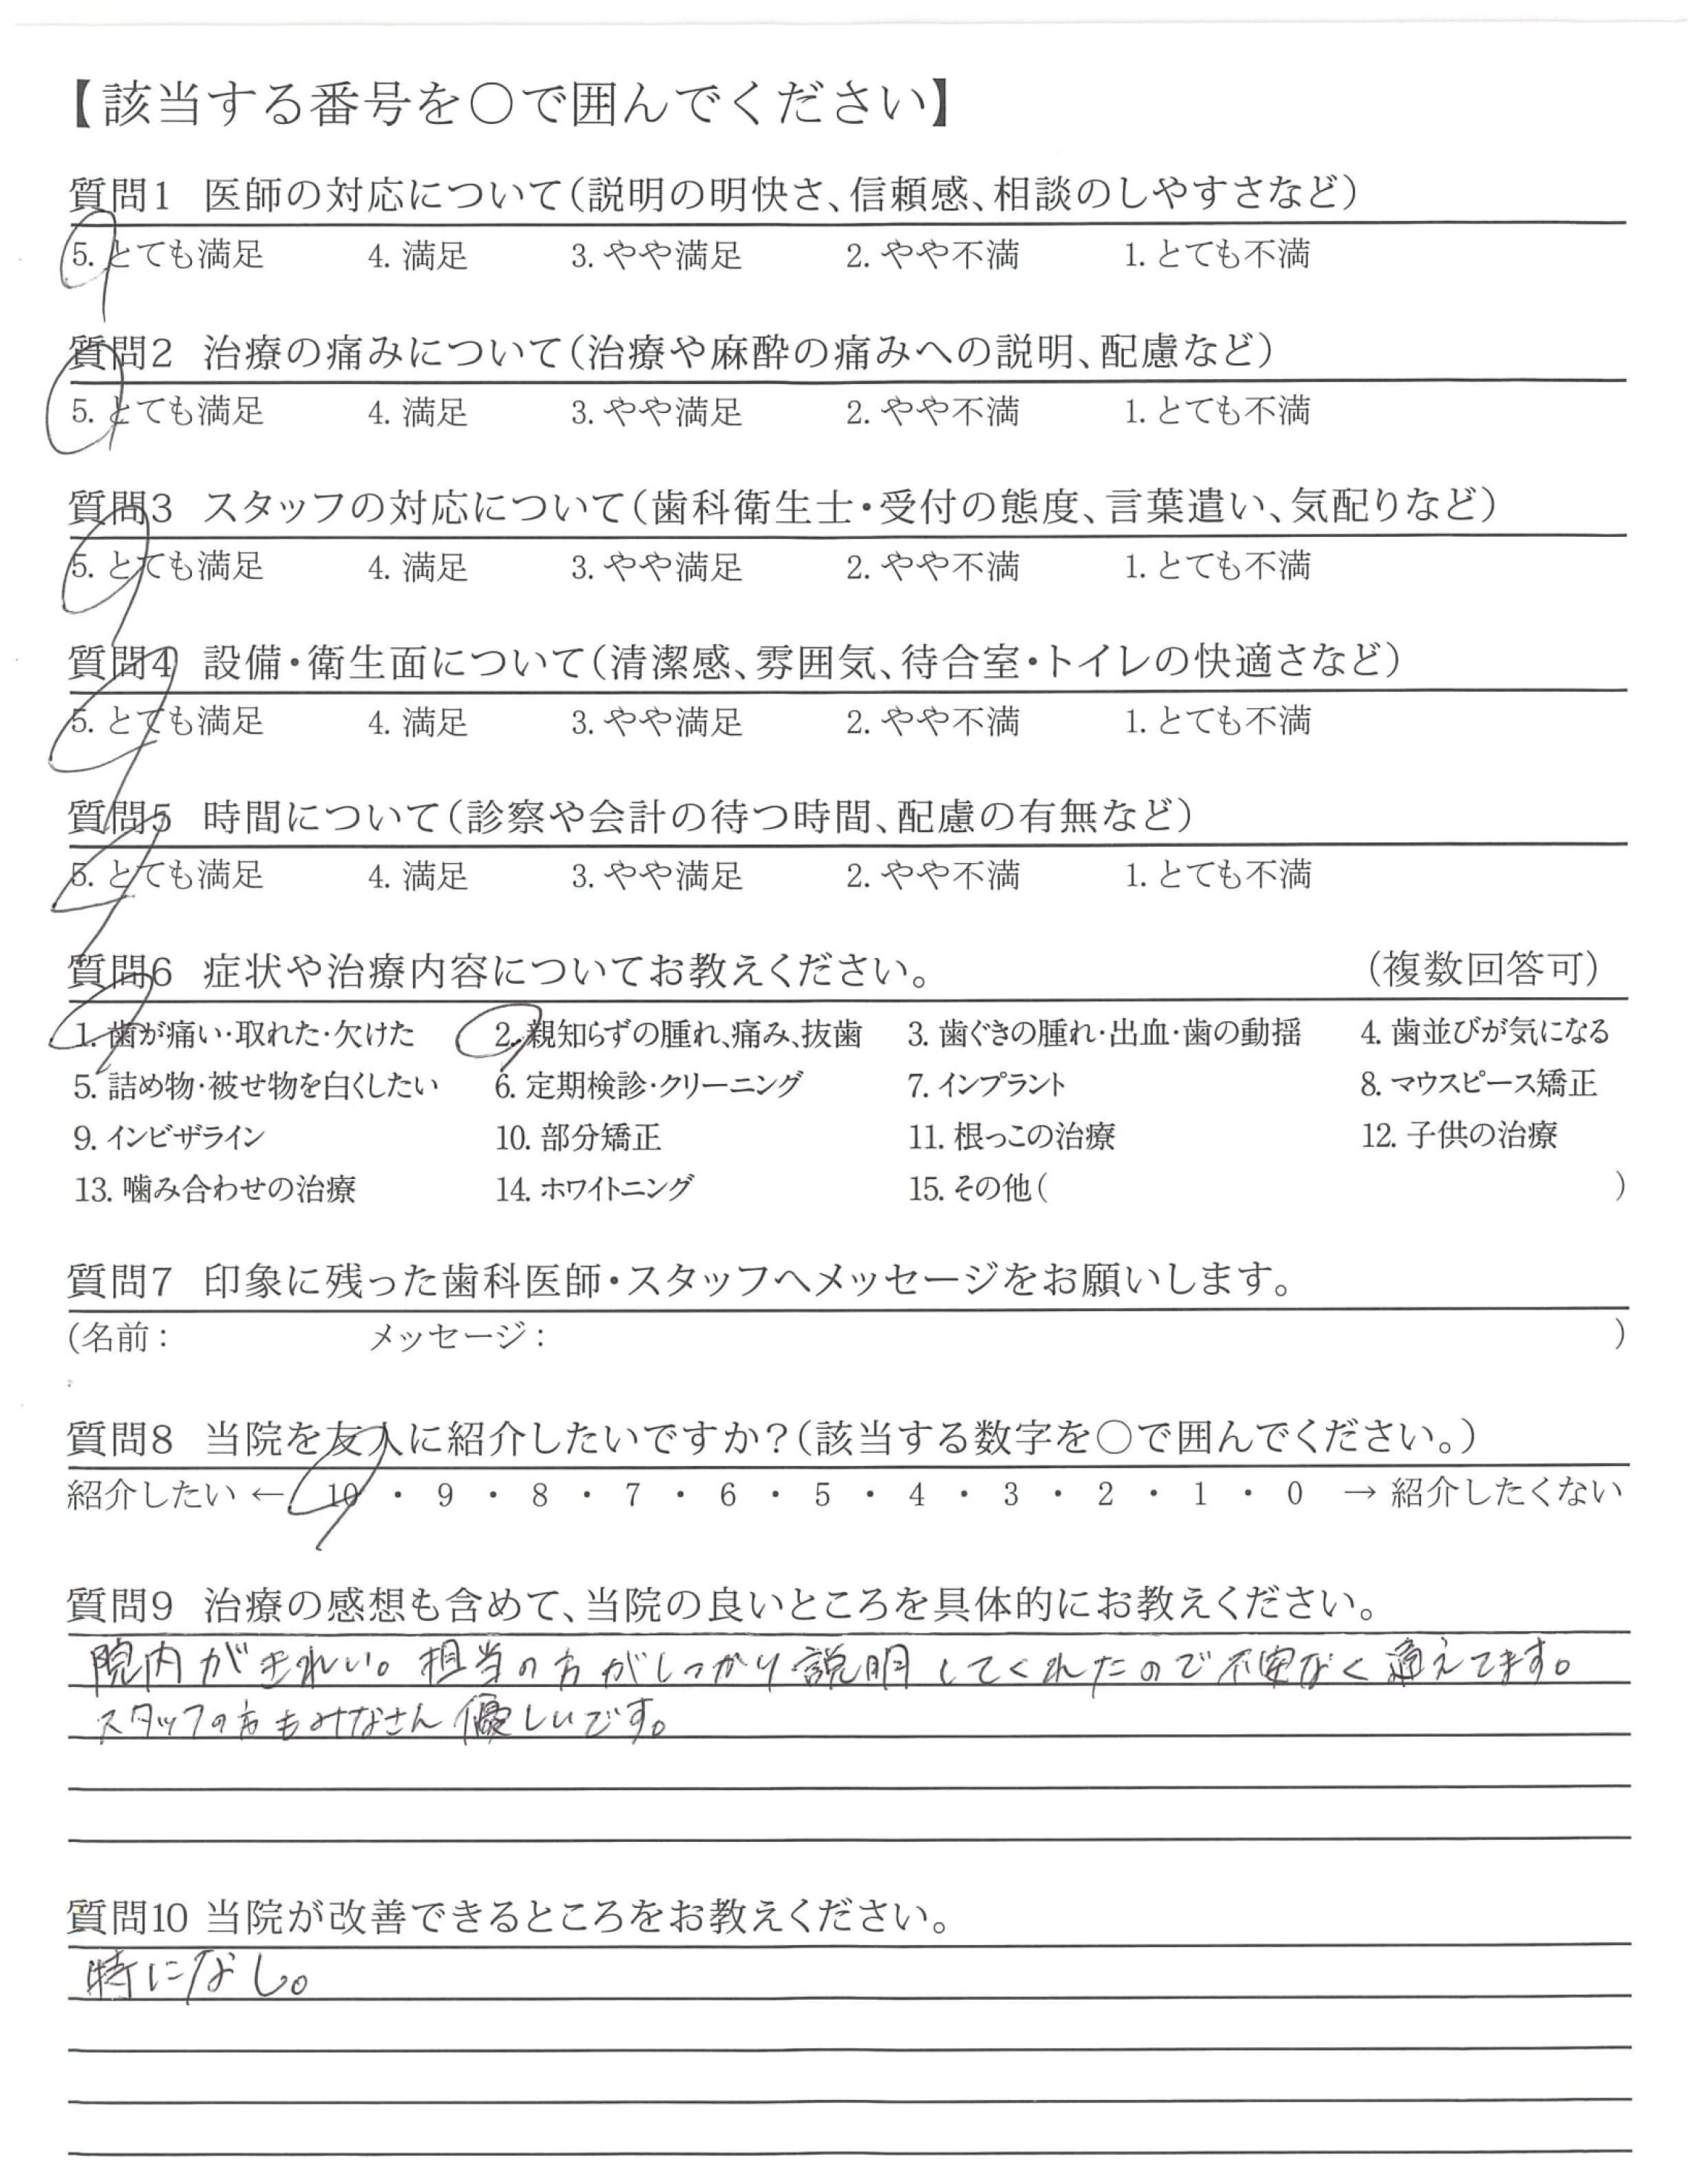 【該当する番号を○で囲んでください】
質問1 医師の対応について(説明の明快さ、信頼感、相談のしやすさなど)
5. とても満足 4. 満足 3. やや満足 2. やや不満 1. とても不満
質問2 治療の痛みについて(治療や麻酔の痛みへの説明、配慮など)
5. とても満足 4. 満足 3. やや満足 2. やや不満 1. とても不満
質問3 スタッフの対応について(歯科衛生士・受付の態度、言葉遣い、気配りなど)
5. とても満足 4. 満足 3. やや満足 2. やや不満 1. とても不満
質問4 設備・衛生面について(清潔感、雰囲気、待合室・トイレの快適さなど)
5. とても満足 4. 満足 3. やや満足 2. やや不満 1. とても不満
質問5 時間について(診察や会計の待つ時間、配慮の有無など)
5. とても満足 4. 満足 3. やや満足 2. やや不満 1. とても不満
質問6 症状や治療内容についてお教えください。 (複数回答可)
1. 歯が痛い・取れた・欠けた 2. 親知らずの腫れ、痛み、抜歯 3. 歯ぐきの腫れ・出血・歯の動揺 4. 歯並びが気になる
5. 詰め物・被せ物を白くしたい 6. 定期検診・クリーニング 7. インプラント 8. マウスピース矯正
9. インビザライン 10. 部分矯正 11. 根っこの治療 12. 子供の治療
13. 噛み合わせの治療 14. ホワイトニング 15. その他( )
質問7 印象に残った歯科医師・スタッフへメッセージをお願いします。
(名前: メッセージ: )
質問8 当院を友人に紹介したいですか?(該当する数字を○で囲んでください。)
紹介したい ← 10 ・ 9 ・ 8 ・ 7 ・ 6 ・ 5 ・ 4 ・ 3 ・ 2 ・ 1 ・ 0 → 紹介したくない
質問9 治療の感想も含めて、当院の良いところを具体的にお教えください。
院内がきれい。担当の方がしっかり説明してくれたので不安なく通えてます。
スタッフの方もみなさん優しいです。
質問10 当院が改善できるところをお教えください。
特になし。